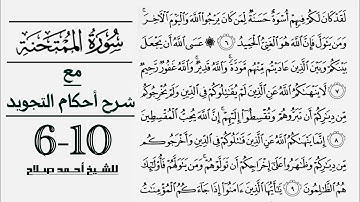 سورة الممتحنة
مع
شرح أحكام التجويد
6-10
للشيخ أحمد صلاح
لَقَدْ كَانَ لَكُمْ فِيهِمْ أُسْوَةٌ حَسَنَةٌ لِّمَن كَانَ يَرْجُوا۟ ٱللَّهَ وَٱلْيَوْمَ ٱلْءَاخِرَ ۚ
وَمَن يَتَوَلَّ فَإِنَّ ٱللَّهَ هُوَ ٱلْغَنِىُّ ٱلْحَمِيدُ ٦ ۞ عَسَى ٱللَّهُ أَن يَجْعَلَ
بَيْنَكُمْ وَبَيْنَ ٱلَّذِينَ عَادَيْتُم مِّنْهُم مَّوَدَّةً ۚ وَٱللَّهُ قَدِيرٌ ۚ وَٱللَّهُ غَفُورٌ رَّحِيمٌ
٧ لَّا يَنْهَىٰكُمُ ٱللَّهُ عَنِ ٱلَّذِينَ لَمْ يُقَٰتِلُوكُمْ فِى ٱلدِّينِ وَلَمْ يُخْرِجُوكُم
مِّن دِيَٰرِكُمْ أَن تَبَرُّوهُمْ وَتُقْسِطُوٓا۟ إِلَيْهِمْ ۚ إِنَّ ٱللَّهَ يُحِبُّ ٱلْمُقْسِطِينَ
٨ إِنَّمَا يَنْهَىٰكُمُ ٱللَّهُ عَنِ ٱلَّذِينَ قَٰتَلُوكُمْ فِى ٱلدِّينِ وَأَخْرَجُوكُم
مِّن دِيَٰرِكُمْ وَظَٰهَرُوا۟ عَلَىٰٓ إِخْرَاجِكُمْ أَن تَوَلَّوْهُمْ ۚ وَمَن يَتَوَلَّهُمْ فَأُو۟لَٰٓئِكَ
هُمُ ٱلظَّٰلِمُونَ ٩ يَٰٓأَيُّهَا ٱلَّذِينَ ءَامَنُوٓا۟ إِذَا جَآءَكُمُ ٱلْمُؤْمِنَٰتُ